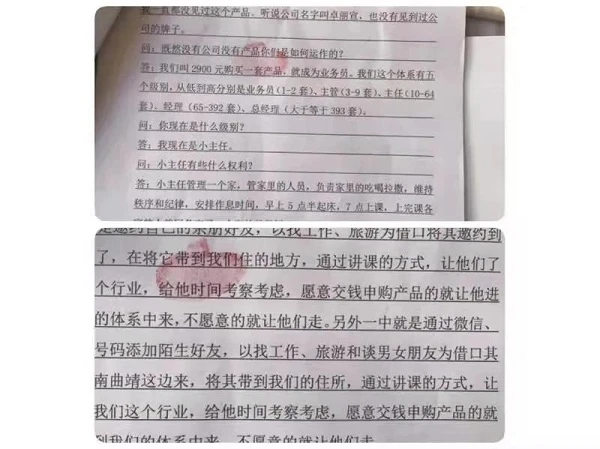 我一直都没见过这个产品。听说公司名字叫点丽宣,也没有见到过公
司的牌子。
问:既然没有公司没有产品你们是如何运作的?
答:我们叫 2900 元购买一套产品,就成为业务员。我们这个体系有五
个级别,从低到高分别是业务员(1-2 套)、主管(3-9 套)、主任(10-64
套)、经理(65-392 套)、总经理(大于等于 393 套)。
问:你现在是什么级别?
答:我现在是小主任。
问:小主任有些什么权利?
答:小主任管理一个家,管家里的人员,负责家里的吃喝拉撒,维持
秩序和纪律,安排作息时间,早上 5 点半起床,7 点上课,上完课各
是邀约自己的亲朋好友,以找工作、旅游为借口将其邀约到
了,在将它带到我们住的地方,通过讲课的方式,让他们了
个行业,给他时间考察考虑,愿意交钱申购产品的就让他进
的体系中来,不愿意的就让他们走。另外一中就是通过微信、
号码添加陌生好友,以找工作、旅游和谈男女朋友为借口其
南曲靖这边来,将其带到我们的住所,通过讲课的方式,让
我们这个行业,给他时间考察考虑,愿意交钱申购产品的就
到我们的体系中来,不愿意的就让他们走